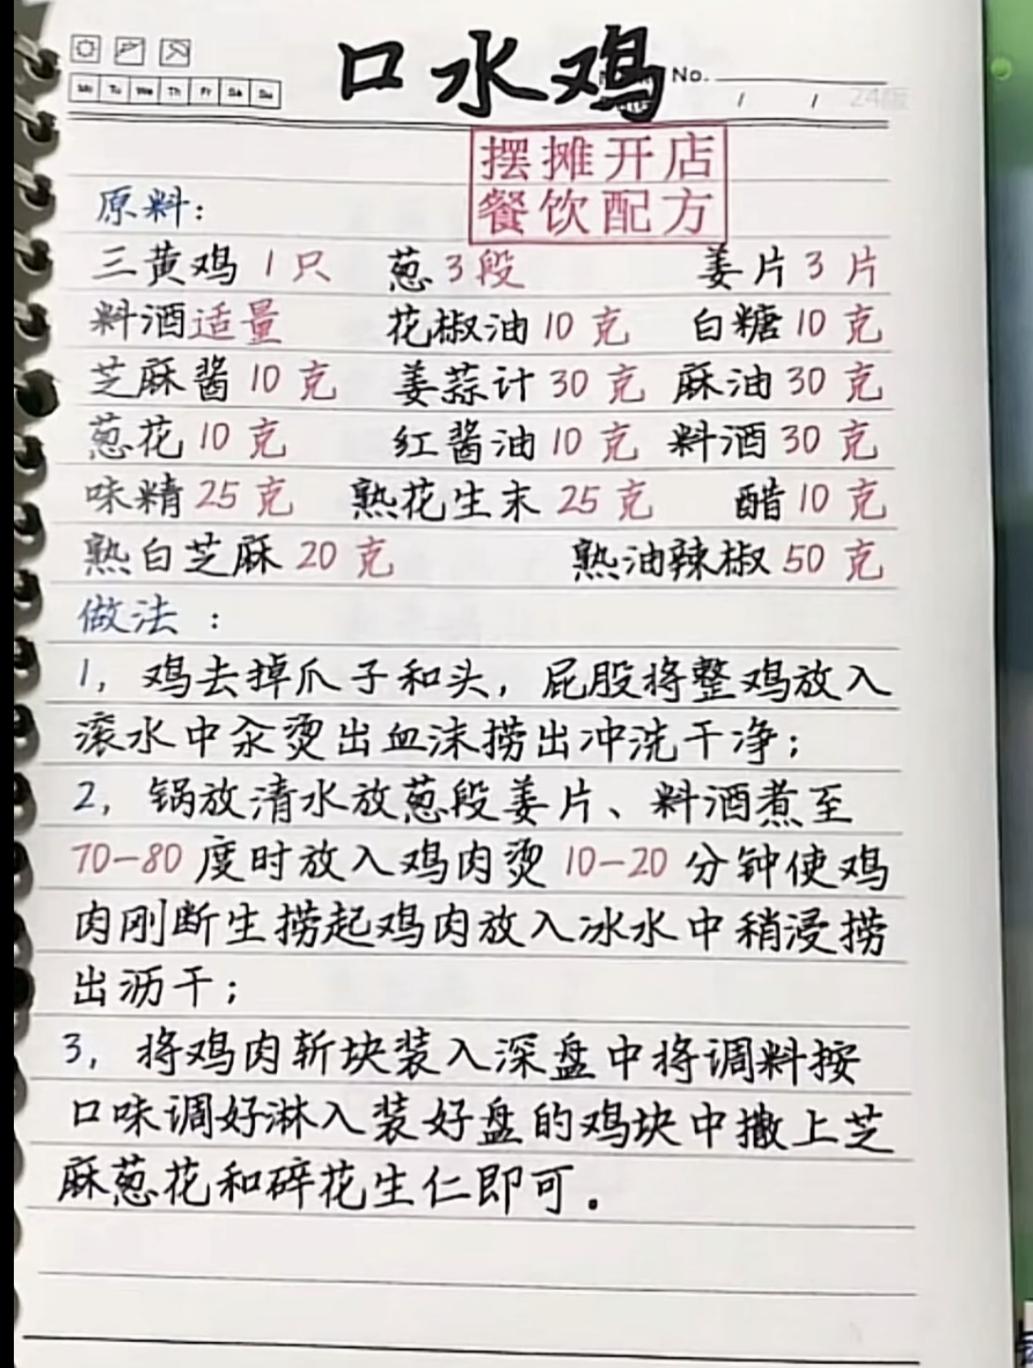 口水鸡
No.
Mo Tu We Th Fr Sa Su
/ /
24版
摆摊开店
餐饮配方
原料：
三黄鸡1只 葱3段 姜片3片
料酒适量 花椒油10克 白糖10克
芝麻酱10克 姜蒜计30克 麻油30克
葱花10克 红酱油10克 料酒30克
味精25克 熟花生末25克 醋10克
熟白芝麻20克 熟油辣椒50克
做法：
1，鸡去掉爪子和头，屁股将整鸡放入
滚水中汆烫出血沫捞出冲洗干净；
2，锅放清水放葱段姜片、料酒煮至
70-80度时放入鸡肉烫10-20分钟使鸡
肉刚断生捞起鸡肉放入冰水中稍浸捞
出沥干；
3，将鸡肉斩块装入深盘中将调料按
口味调好淋入装好盘的鸡块中撒上芝
麻葱花和碎花生仁即可。